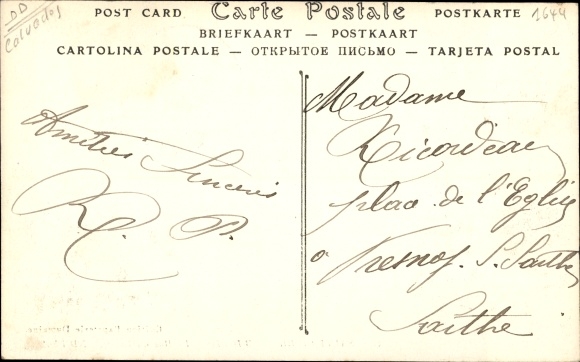 DD
Calvados
1644
POST CARD Carte Postale POSTKARTE
BRIEFKAART — POSTKAART
CARTOLINA POSTALE — ОТКРЫТОЕ ПИСЬМО — TARJETA POSTAL
Amitiés Sincères
R. P.
Madame
Ricordeau
place de l'Eglise
à Fresnay S. Sarthe
Sarthe